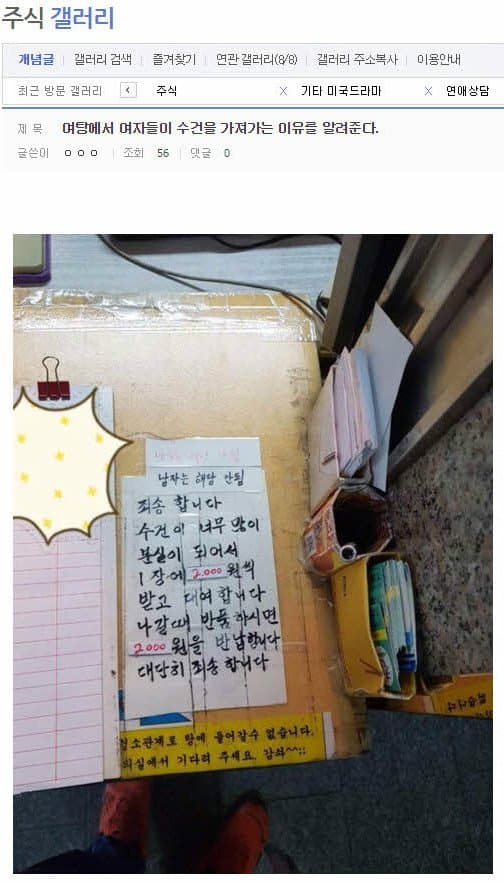 주식 갤러리
개념글 갤러리 검색 즐겨찾기 연관 갤러리(8/8) 갤러리 주소복사 이용안내
최근 방문 갤러리 < 주식 X 기타 미국드라마 X 연애상담
제 목 여탕에서 여자들이 수건을 가져가는 이유를 알려준다.
글쓴이 ㅇㅇㅇ 조회 56 댓글 0
남자는 해당 안됨
죄송 합니다
수건이 너무 많이
분실이 되어서
1장에 2.000 원씩
받고 대여합니다
나갈때 반듭하시면
2000 원을 반납합니다
대단히 죄송합니다
청소관계로 탕에 들어갈수 없습니다.
의실에서 기다려 주세요. 감솨^^;;